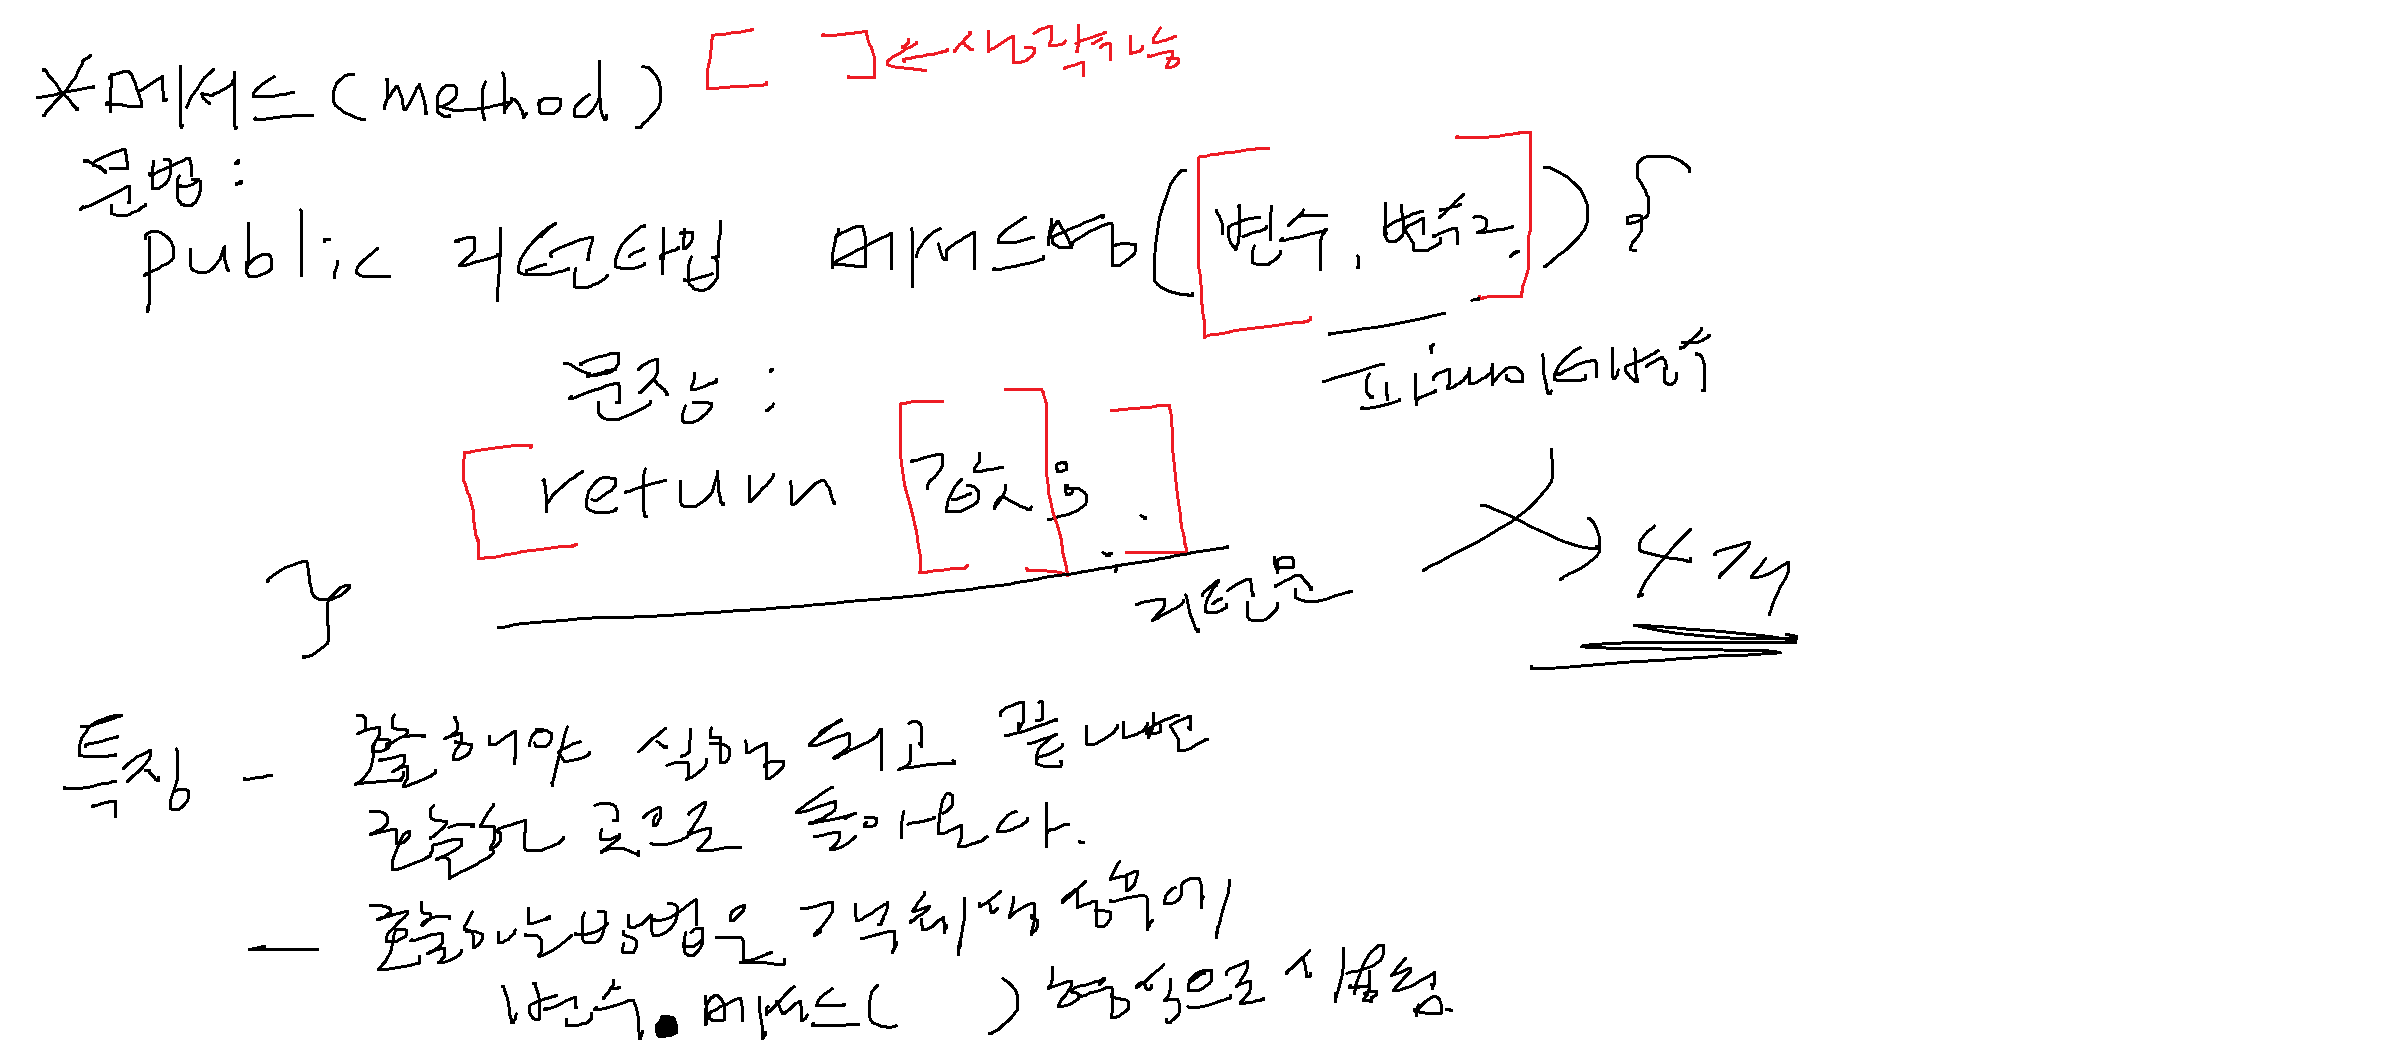 *메서드(method) [ ] ← 생략가능
문법:
public 리턴타입 메서드명([변수, 변수2,]) {
파라메터변수
문장:
[return [값]; ]
리턴문
→ 4가
}
특징 - 호출해야 실행 되고 끝나면
호출한 곳으로 돌아온다.
- 호출하는방법은 객체생성후에
변수.메서드( ) 형식으로 사용됨.